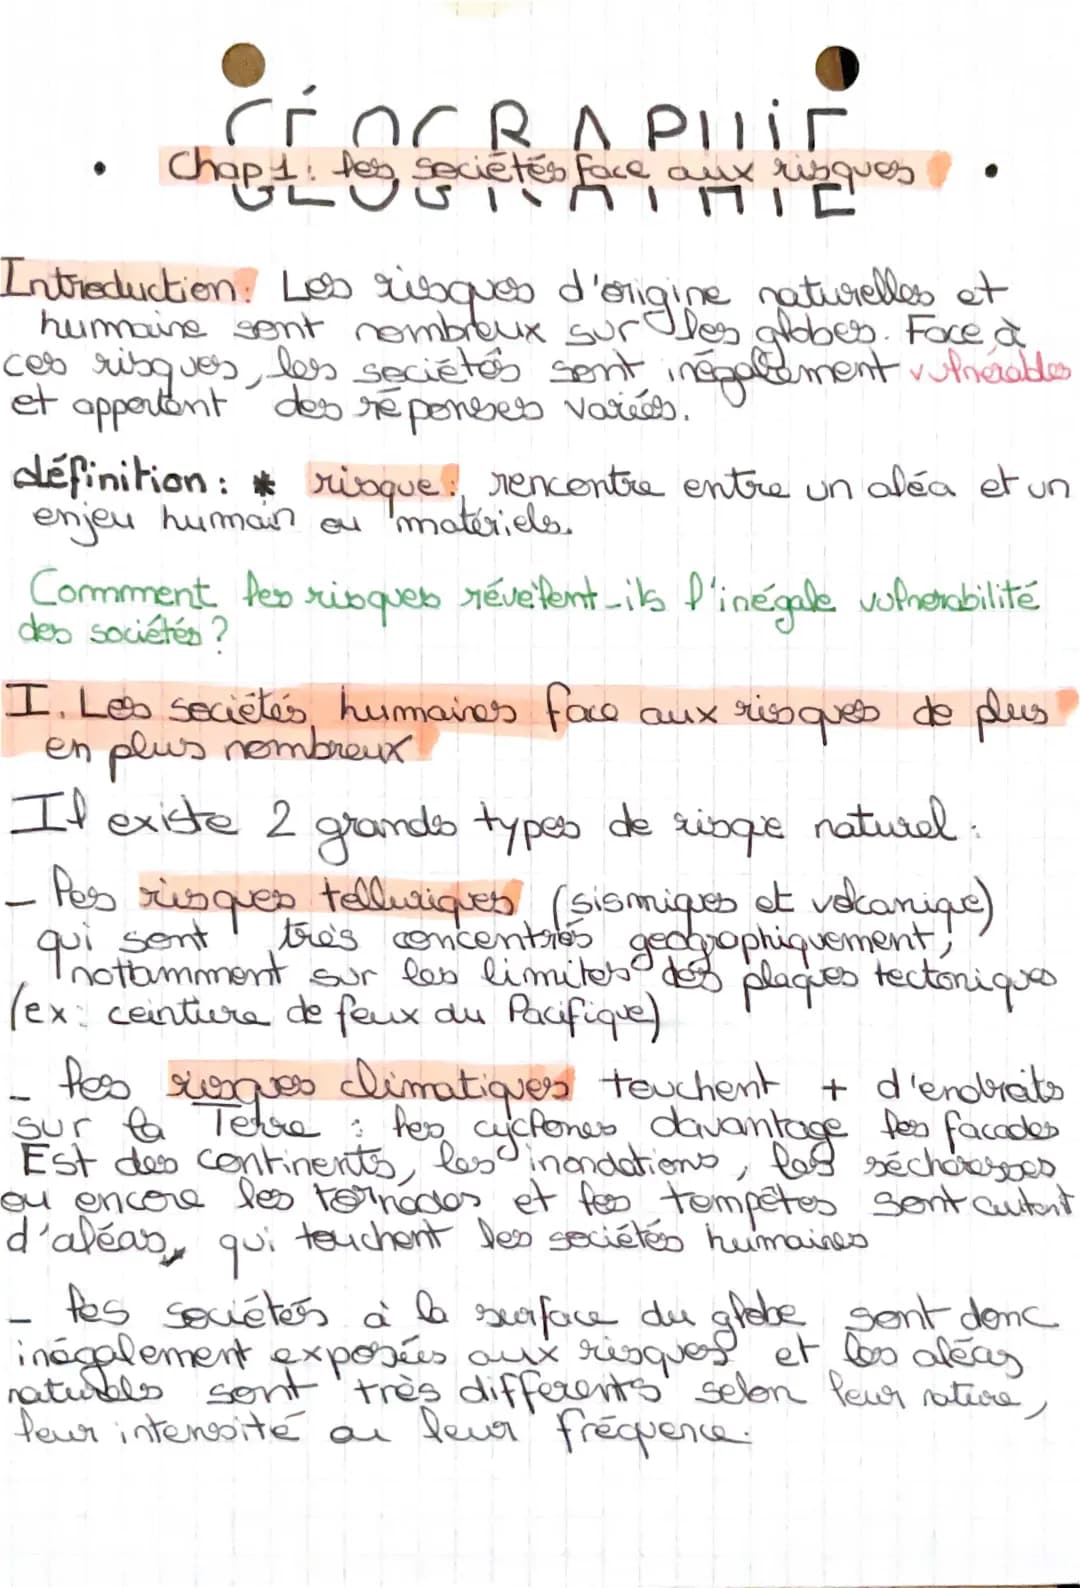 GÉOGRAPHIE
• Chap 1: les sociétés face aux risques •
Introduction: Les risques d'origine naturelles et
humaine sont nombreux sur les globes. Face à
ces risques, les sociétés sont inégalement vulnérables
et apportent des réponses variés.
définition: * risque: rencontre entre un aléa et un
enjeu humain ou matériels.
Commment les risques révèlent-ils l'inégale vulnérabilité
des sociétés ?
I. Les sociétés humaines face aux risques de plus
en plus nombreux
Il existe 2 grands types de risque naturel :
- les risques telluriques (sismiques et volcanique)
qui sont très concentrés geographiquement,
nottamment sur les limites des plaques tectoniques
(ex: ceinture de feux du Pacifique)
- les risques climatiques touchent + d'endroits
sur la Terre : les cyclones davantage les facades
Est des continents, les inondations, les sécheresses
ou encore les tornades et les tempêtes sont autant
d'aléas, qui touchent les sociétés humaines
- les sociétés à la surface du globe sont donc
inégalement exposées aux risques et les aléas
naturels sont très différents selon leur nature,
leur intensité ou leur fréquence.